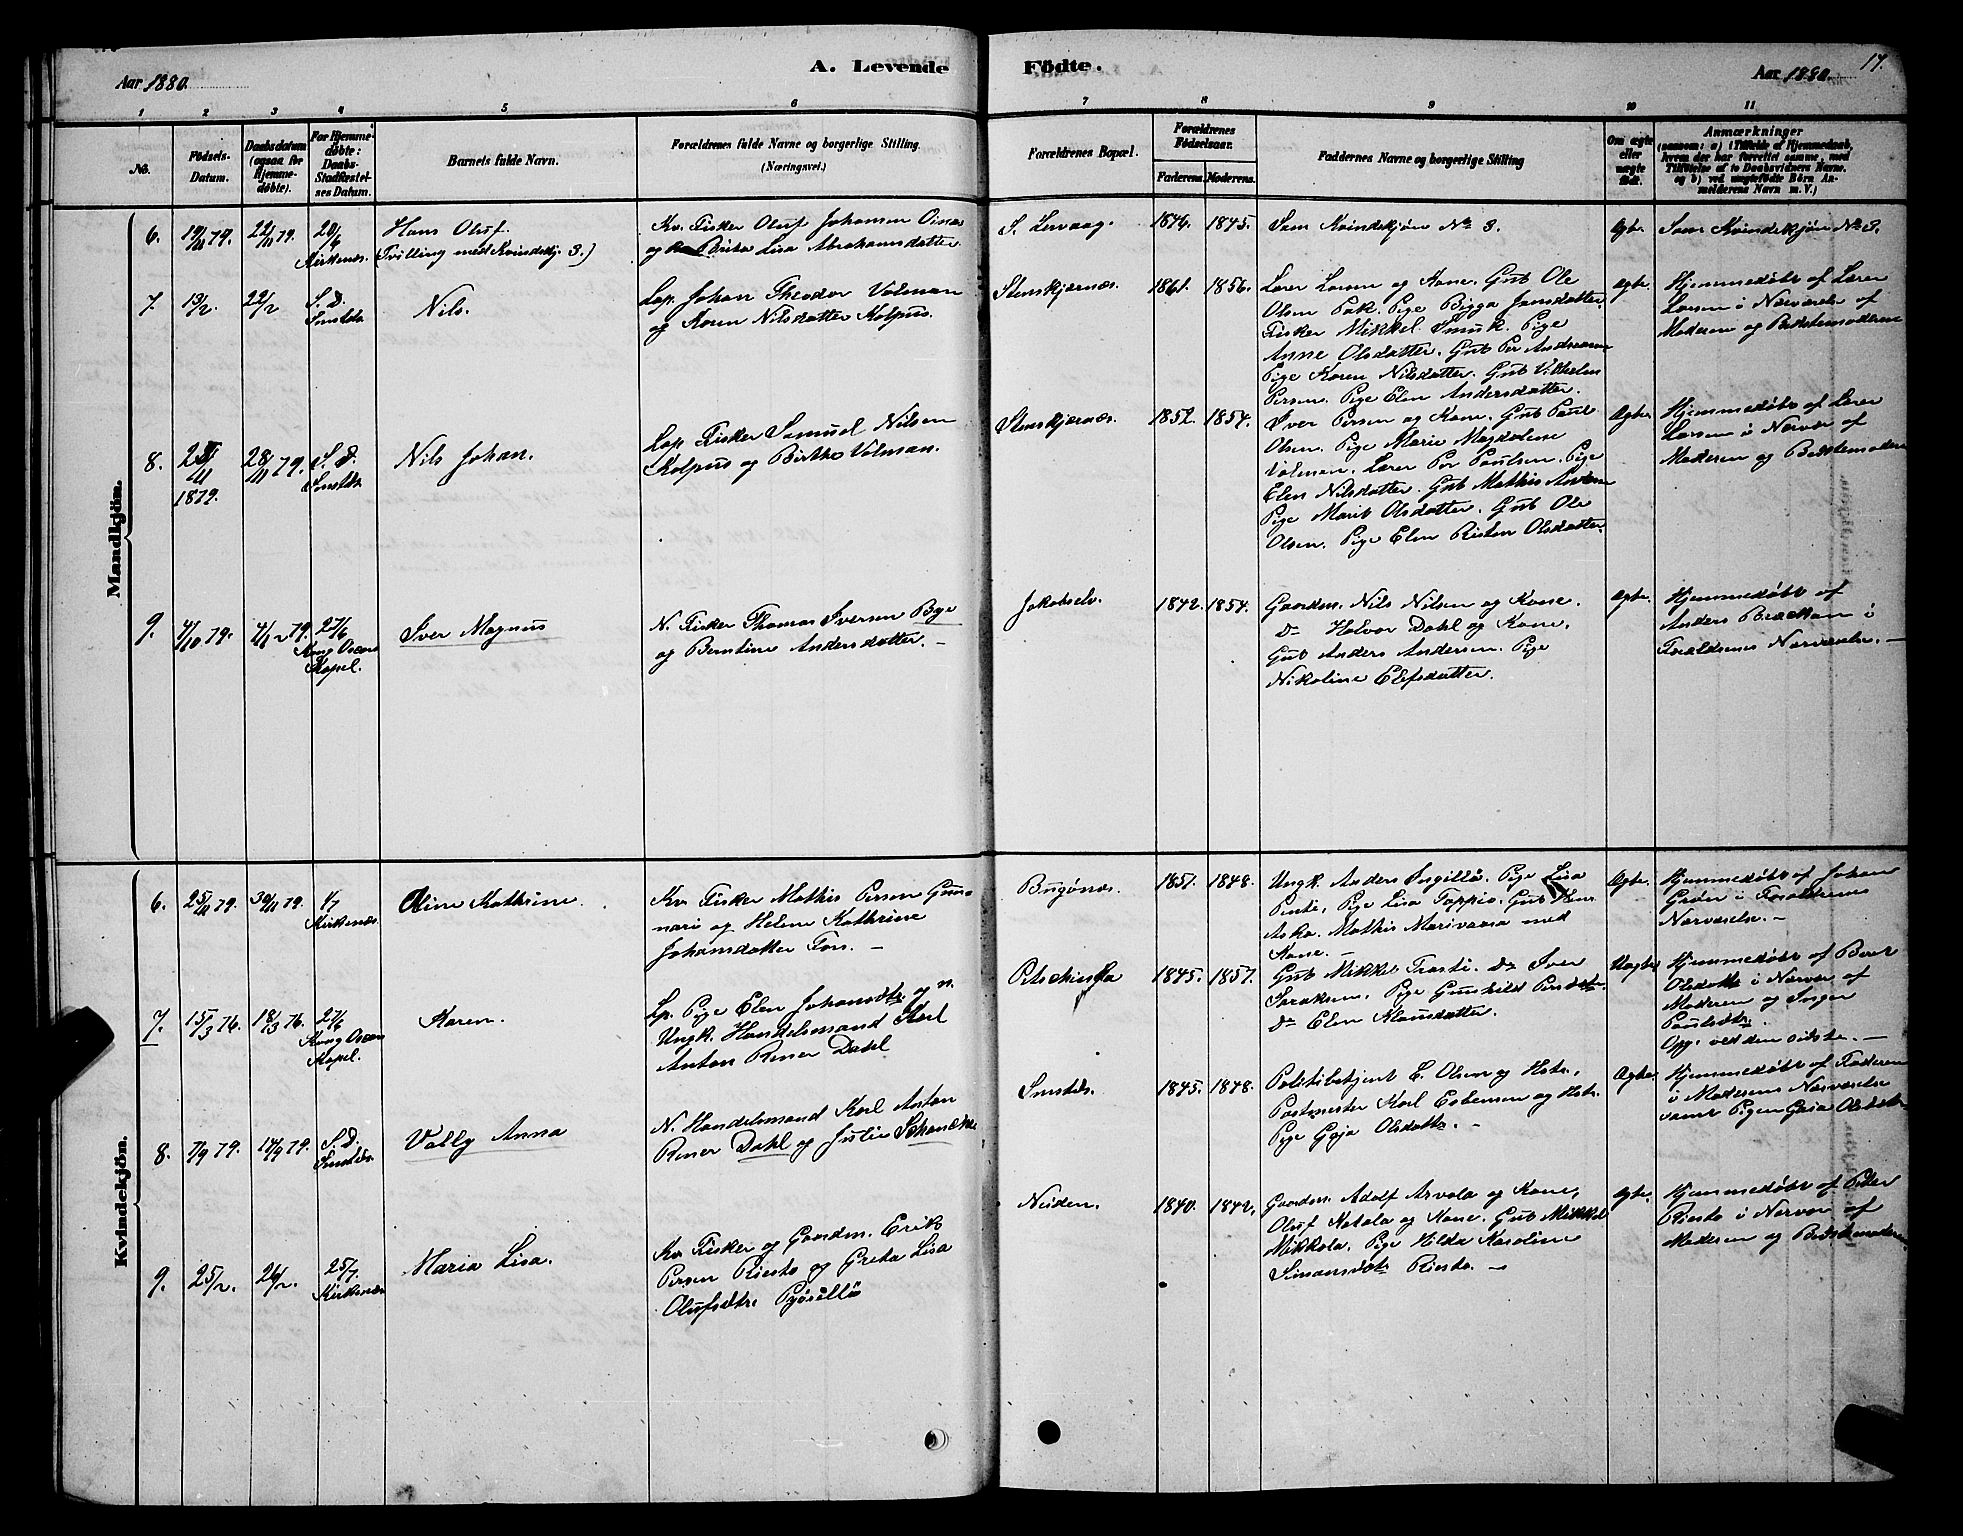 Aar 1880.
A. Levende
Födte.
Aar 1880.
17.
1 2 3 4 5 6 7 8 9 10 11
No.
Födsels-Datum.
Daabsdatum (ogsaa for Hjemmedöbte).
For Hjemmedöbte: Daabs-Stadfæstelses Datum.
Barnets fulde Navn.
Forældrenes fulde Navne og borgerlige Stilling. (Næringsvei.)
Forældrenes Bopæl.
Forældrenes Födselsaar.
Faderens. Moderens.
Faddernes Navne og borgerlige Stilling
Om ægte eller uægte födt.
Anmærkninger
(saasom: a) i Tilfælde af Hjemmedaab, hvem der har forrettet samme, med Tilföielse af to Daabsvidners Navne, og b) ved uægtefödte Börn Anmelderens Navn m. V.)
Mandkjön.
6. 19/11 79. 22/11 79. 20/6 Kirkenes.
Hans Oluf.
(Tvilling med Kvindekj. 3.)
Kv. Fisker Oluf Johansen Oinas
og Brita Lisa Abrahamsdatter
S. Lervaag. 1846. 1845.
Som Kvindekjøn No 3.
Ægte.
Som Kvindekjøn No 3.
7. 13/2. 22/2 S. D. Smstds.
Nils.
Lap. Johan Theodor Valman
og Karen Nilsdatter Kolpus.
Stenskjærnæs. 1861. 1856.
Lærer Larsen og Kone. Gut Ole
Olsen Pak. Pige Bigga Jonsdatter.
Fisker Mikkel Smuk. Pige
Anne Olsdatter. Gut Per Andreasen
Pige Karen Nilsdatter. Gut Vilhelm
Persen. Pige Elen Andersdatter.
Ægte.
Hjemmedøbt af Lærer
Larsen i Nærværelse af
Moderen og Bedstemoderen
8. 1879. 28/11 79. S. D. Smstds.
Nils Johan.
Lap. Fisker Samuel Nilsen
Kolpus og Birthe Valman.
Stenskjærnæs. 1852. 1854.
Iver Persen og Kone. Gut Paul
Olsen. Pige Marie Magdalene
Valman. Lærer Per Paulsen. Pige
Elen Nilsdatter. Gut Mathis
Pige Marit Olsdatter. Gut Ole
Olsen. Pige Elen Risten Olsdatter.
Ægte.
Hjemmedøbt af Lærer
Larsen i Nærvær af
Moderen og Bedstemoderen
9. 4/10 79. 27/6 Kong Oscars Kapel.
Iver Magnus
N. Fisker Thomas Iversen Bye
og Berntine Andersdatter. —
Jakobselv. 1842. 1854.
Gaardm. Nils Nilsen og Kone.
Do Halvor Dahl og Kone,
Gut Anders Andersen. Pige
Nikoline Elefsdatter.
Ægte.
Hjemmedøbt af
Anders Bækken i
Forældrenes Nærværelse. —
Kvindekjön.
6. 25/11 79. 30/11 79. 4/7 Kirkenæs.
Oline Kathrine.
Kv. Fisker Mathis Persen Gun-
nari og Helene Kathrine
Johansdatter Fors. —
Bugønæs. 1851. 1848.
Ungk. Anders Ingillä. Pige Lisa
Penti, Pige Lisa Toppio. Gut Henr.
Aska. Mathis Marivaara med
Kone. —
Ægte.
Hjemmedøbt af Johan
Grøen i Forældrenes
Nærværelse. —
7. 15/3 76. 18/3 76. 27/6 Kong Oscars Kapel.
Karen.
Lp. Pige Elen Johansdtr. og n.
Ungk. Handelsmand Karl
Anton Riner Dahl
1845. 1857.
Gut Mikkel Trosti. Do Iver
Saraksen. Pige Gunhild Persdtr.
Do Elen Klausdatter.
Uægte
Hjemmedøbt af Berit
Olsdatter i Nærvær af
Moderen og Inger
Paulsdtr.
Opg. ved den sidste. —
8. 7/9 79. 14/9 79. S. D. Smstds.
Vally Anna
N. Handelsmand Karl Anton
Riner Dahl og Justie Schancke
Smstds. 1845. 1848.
Politibetjent E. Olsen og Hstr.,
Postmester Karl Esbensen og Hstr.
Pige Gaja Olsdatter. —
Ægte.
Hjemmedøbt af Faderen
i Moderens Nærværelse
samt Pigen Gaia Olsdatter
9. 25/2. 26/2. 25/7. Kirkenæs
Maria Lisa.
Kv. Fisker og Gaardm. Erik
Persen Riesto og Greta Lisa
Olufsdtr. Pyörillö
Neiden. 1840. 1842.
Gaardm. Adolf Arvola og Kone,
Oluf Katola og Kone. Gut Mikkel
Mikkola. Pige Hilda Karoline
Simonsdtr. Riesto. —
Ægte.
Hjemmedøbt af Peder
Riesto i Nærvær af
Moderen og Bedstemoderen